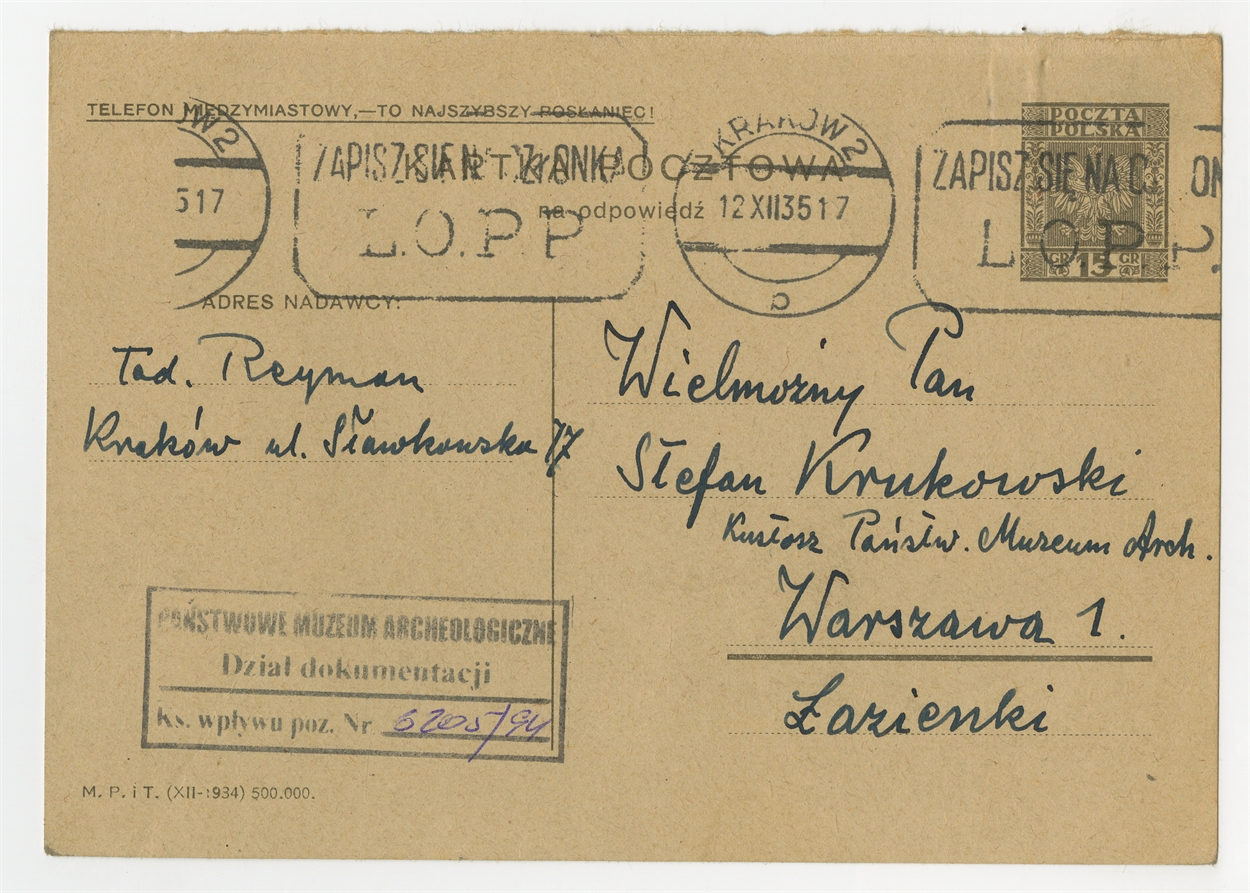 TELEFON MIĘDZYMIASTOWY,—TO NAJSZYBSZY POSŁANIEC!
POCZTA
POLSKA
GR 15 GR
KARTKA POCZTOWA
na odpowiedź
KRAKÓW 2
12 XII 35 17
ÓW 2
5 17
ZAPISZ SIĘ NA CZŁONKA
L.O.P.P
ZAPISZ SIĘ NA C ON
L.O.P.P.
ADRES NADAWCY:
Tad. Reyman
Kraków ul. Sławkowska 17
Wielmożny Pan
Stefan Krukowski
Kustosz Państw. Muzeum Arch.
Warszawa 1.
Łazienki
PAŃSTWOWE MUZEUM ARCHEOLOGICZNE
Dział dokumentacji
Ks. wpływu poz. Nr 6205/94
M. P. i T. (XII-1934) 500.000.